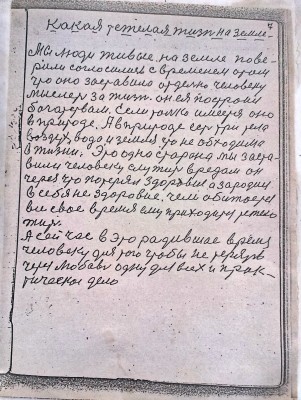 Какая тежелая жизн на земле. 7
Мы люди живые, на земле пове-
рили согласились с временем этом
что оно заставило отделно человеку
мыслею за жизн. он ея построил
богатством. Если толко имеется оно
в природе. А в природе сут три тела
воздух, вода и земля что не обходимо
в жизни. Это одна старана мы заста-
вили человеку служит вредом он
через это потерял здоровье а зародил
в себя не здоровие. чем обитается
все свое время ему приходится тежело
жит.
А сей час в это родившае время
человеку для того чтобы не терять
через любовь одну для всех и прак-
тическое дело